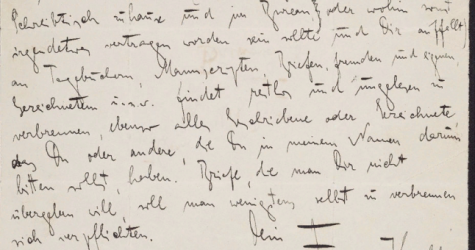 Schreibtisch zuhause und im Bureau, oder wohin sonst
irgendetwas vertragen worden sein sollte und Dir auffällt)
an Tagebüchern, Manuscripten, Briefen, fremden und eigenen,
Gezeichnetem u.s.w. findet restlos und ungelesen zu
verbrennen, ebenso alles Geschriebene oder Gezeichnete,
das Du oder andere, die Du in meinem Namen darum
bitten sollst, haben. Briefe, die man Dir nicht
übergeben will, soll man wenigstens selbst zu verbrennen
sich verpflichten.
Dein